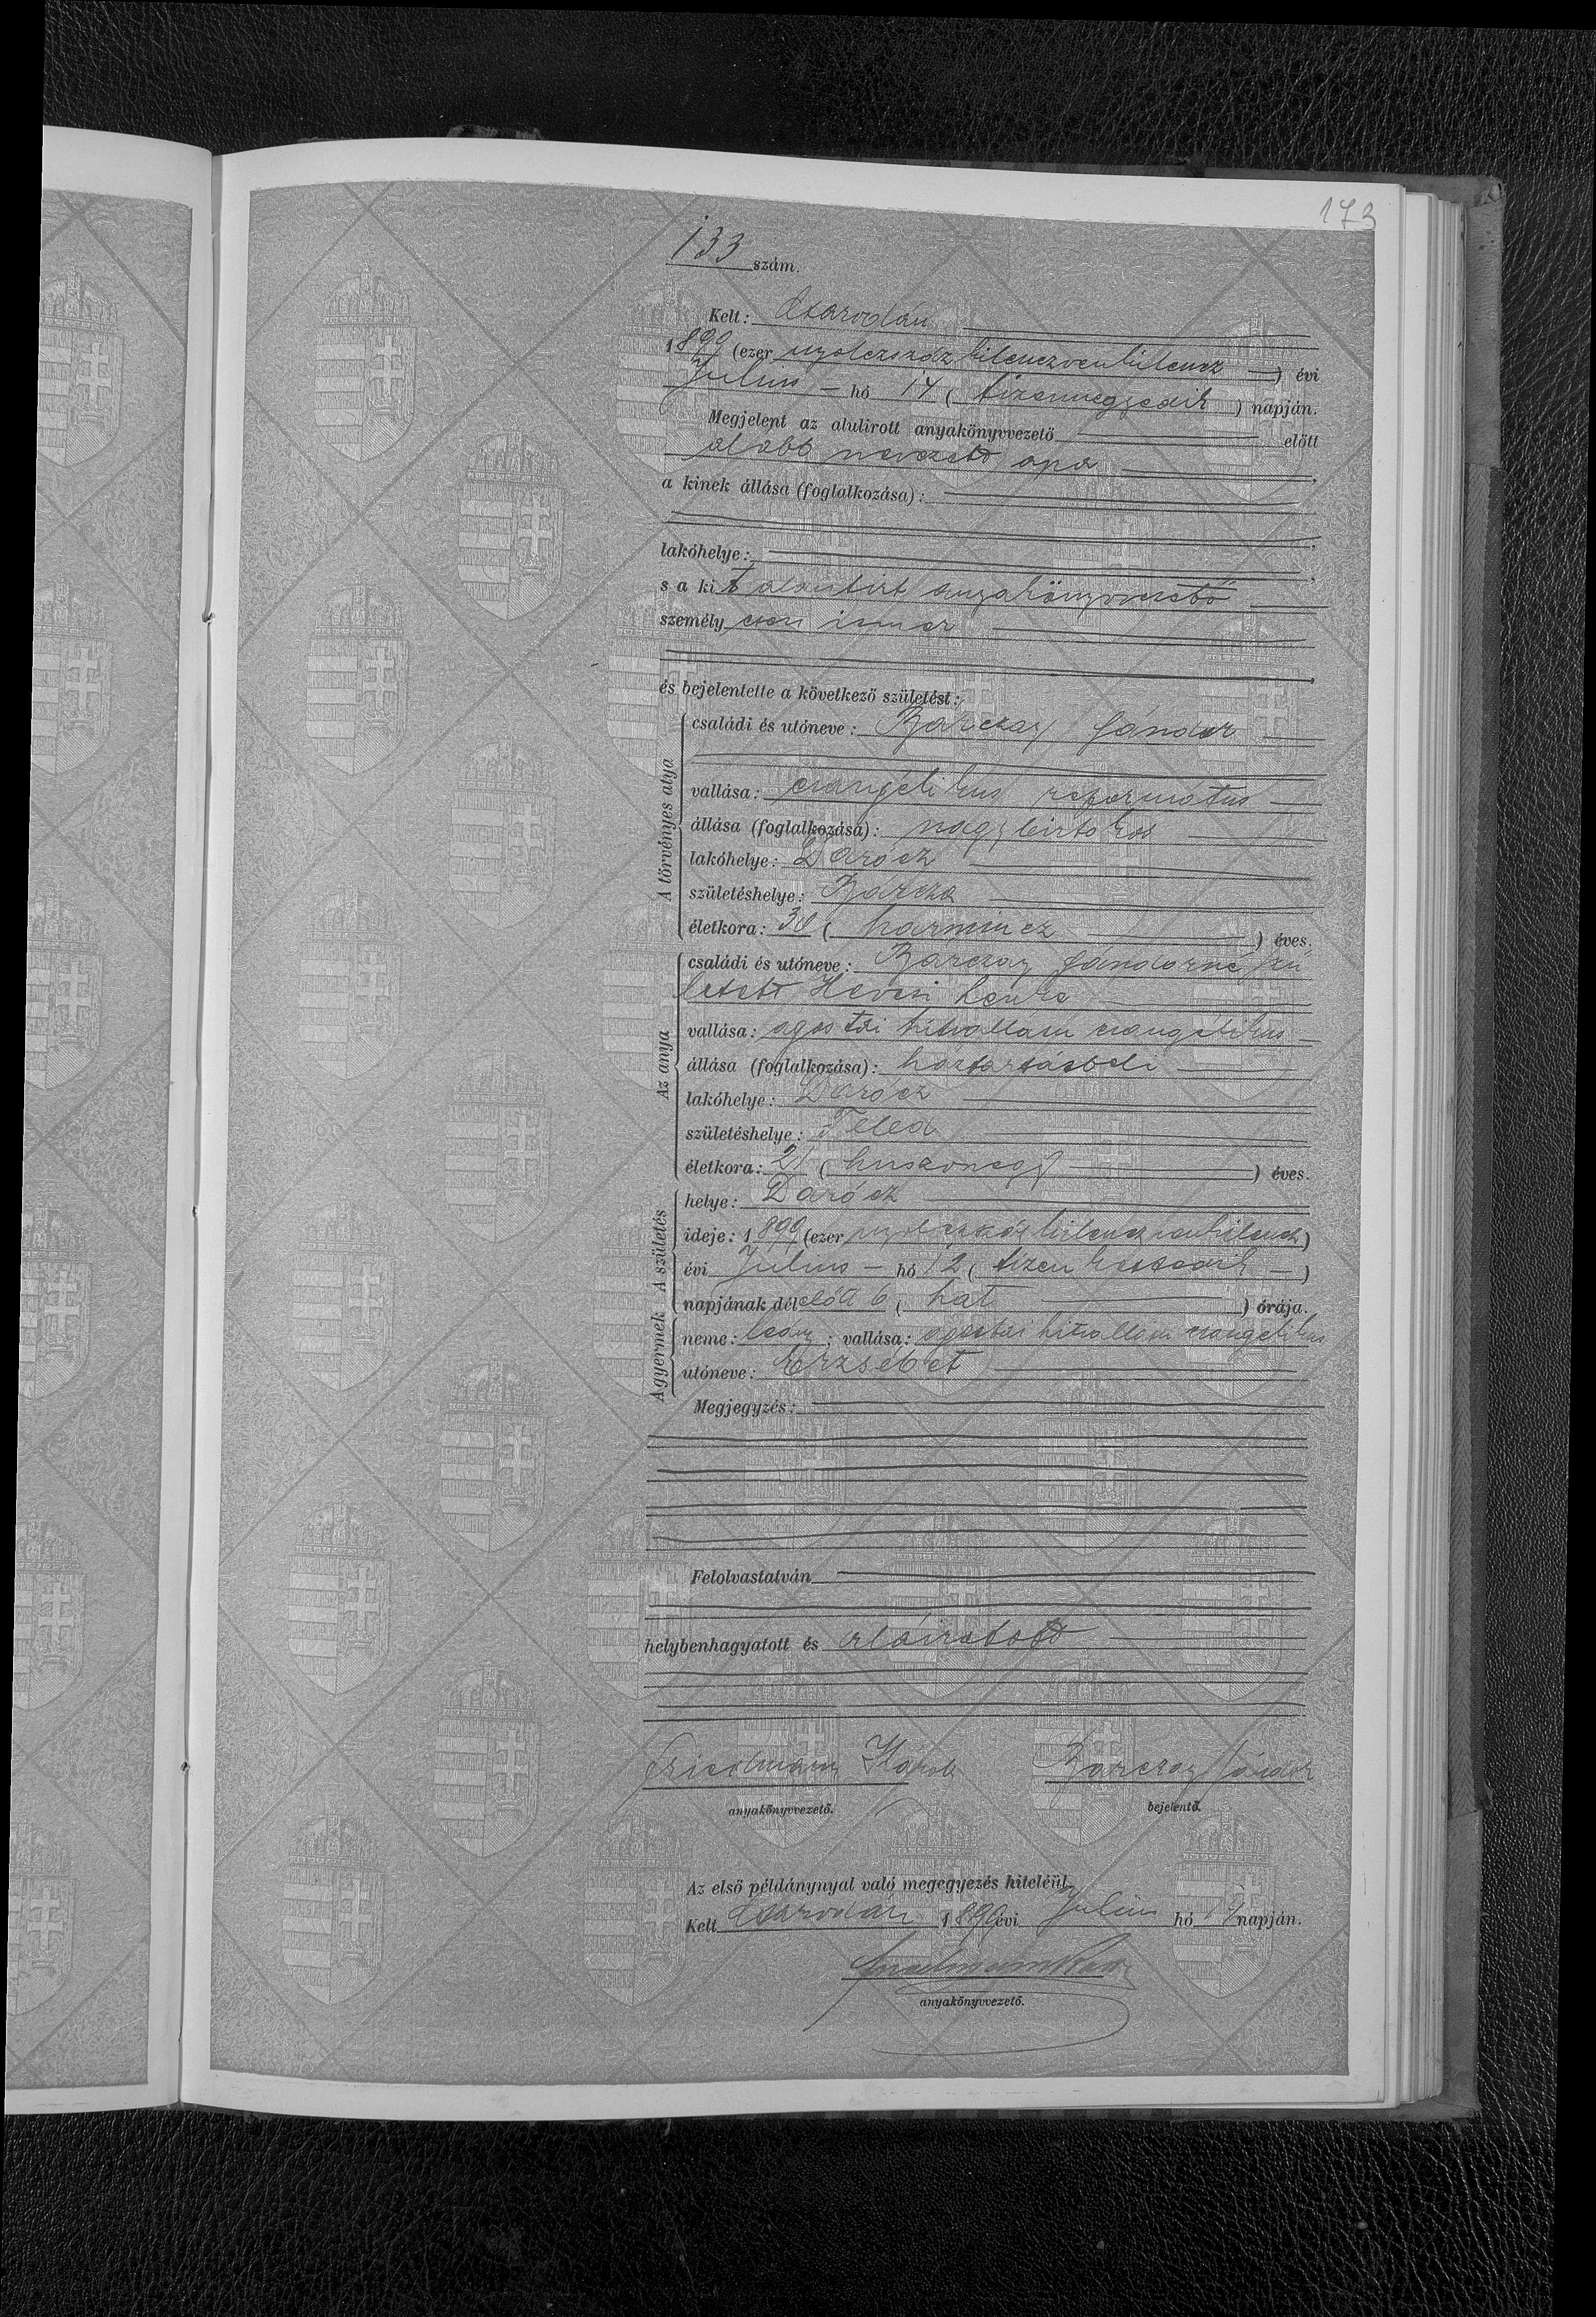 173
133 szám.
Kelt: Csarodán
1899 (ezer nyolczszáz kilenczvenkilencz) évi
Julius hó 14 (tizennegyedik) napján.
Megjelent az alulirott anyakönyvvezető előtt
alább nevezett apa,
a kinek állása (foglalkozása):
lakóhelye:
s a kit alulirt anyakönyvvezető
személyesen ismer
és bejelentette a következő születést:
A törvényes atya
családi és utóneve: Bárczay Sándor
vallása: evangélikus reformatus
állása (foglalkozása): nagybirtokos
lakóhelye: Darócz
születéshelye: Bárcza
életkora: 30 (harmincz) éves.
Az anya
családi és utóneve: Bárczay Sándorné szü
letett Hevesi
vallása: ágostai hitvallásu evangélikus
állása (foglalkozása): háztartásbeli
lakóhelye: Darócz
születéshelye: Feled
életkora: 21 (huszonegy) éves.
A születés
helye: Darócz
ideje: 1899 (ezer nyolczszáz kilenczvenkilencz)
évi Julius hó 12 (tizenkettedik)
napjának délelőtt 6 (hat) órája.
A gyermek
neme: leány; vallása: ágostai hitvallásu evangelikus
utóneve: Erzsébet
Megjegyzés:
Felolvastatván
helybenhagyatott és aláiratott
Friedmann Károly Bárczay Sándor
anyakönyvvezető. bejelentő.
Az első példánynyal való megegyezés hiteléül.
Kelt Csarodán 1899 évi Julius hó 14 napján.
Friedmann Károly
anyakönyvvezető.